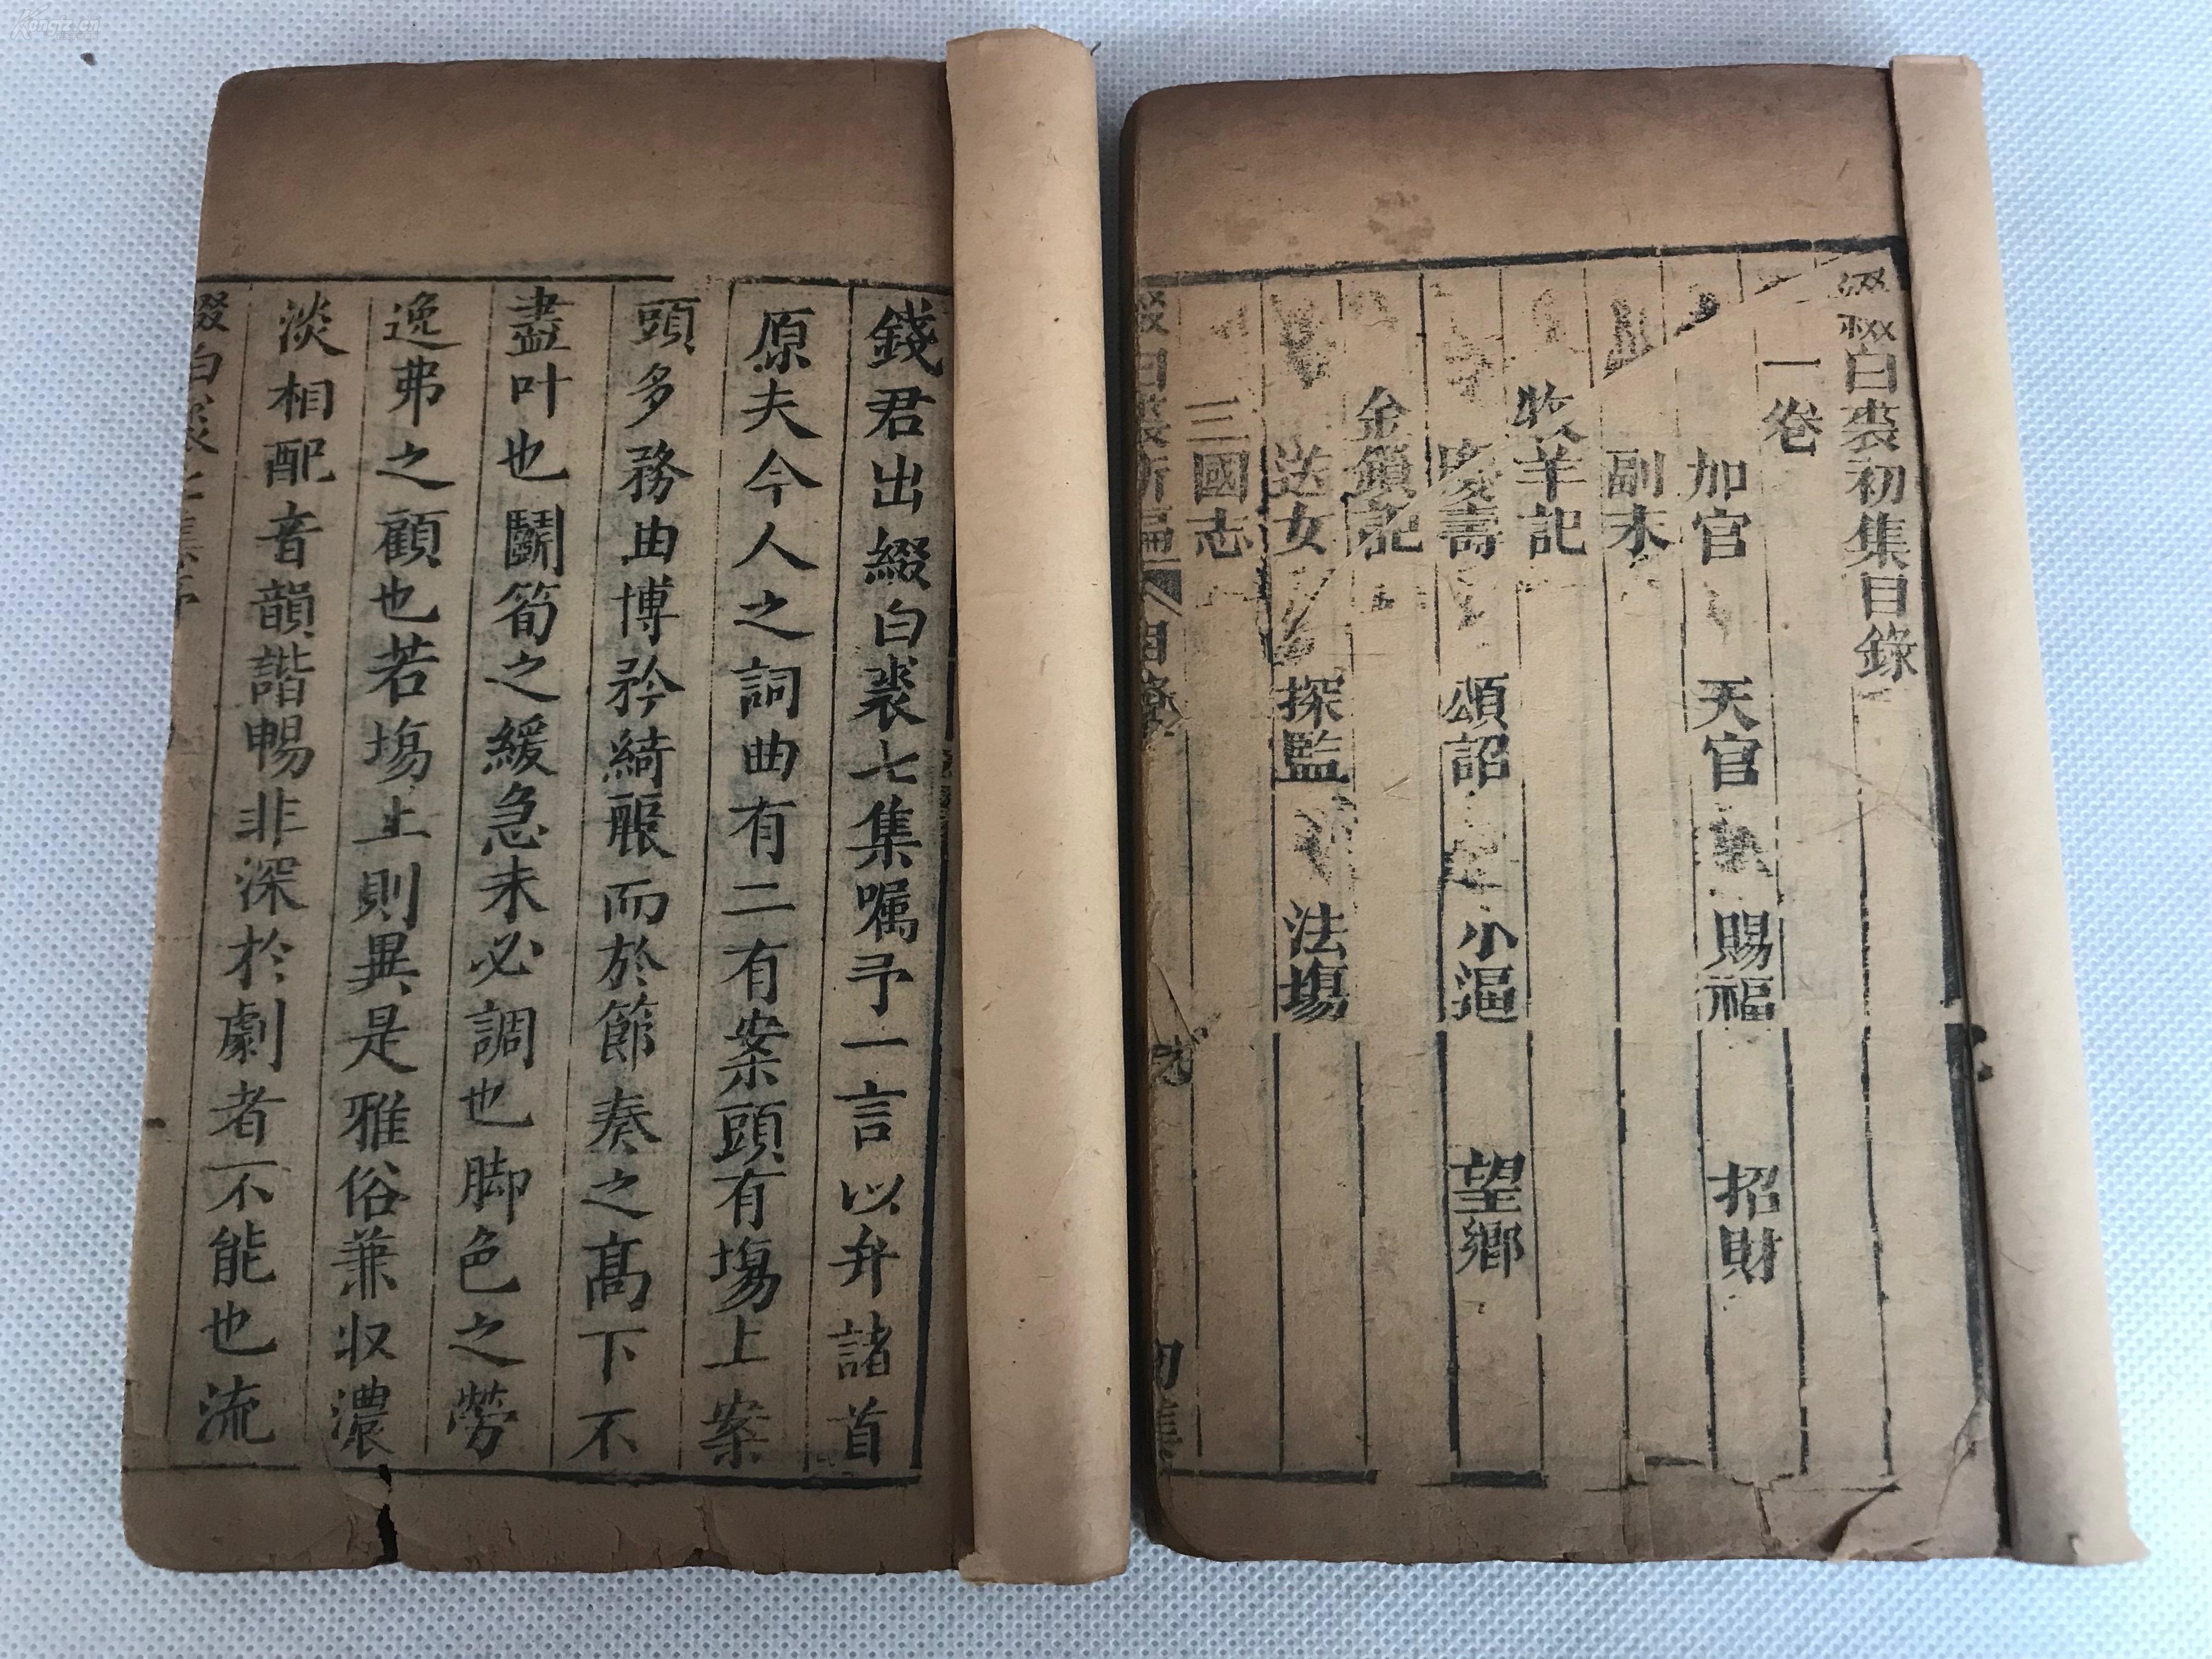 Kongfz.cn
綴白裘初集目錄
一卷
加官 天官 賜福 招財
副末
牧羊記
慶壽 頒詔 小逼 望鄉
金鎖記
送女 探監 法塲
三國志
初集
錢君出綴白裘七集嘱予一言以弁諸首
原夫今人之詞曲有二有案頭有塲上案
頭多務曲博矜綺靡而於節奏之髙下不
盡叶也鬪筍之緩急未必調也脚色之勞
逸弗之顧也若塲上則異是雅俗兼収濃
淡相配音韻諧暢非深於劇者不能也流
綴白裘七集序